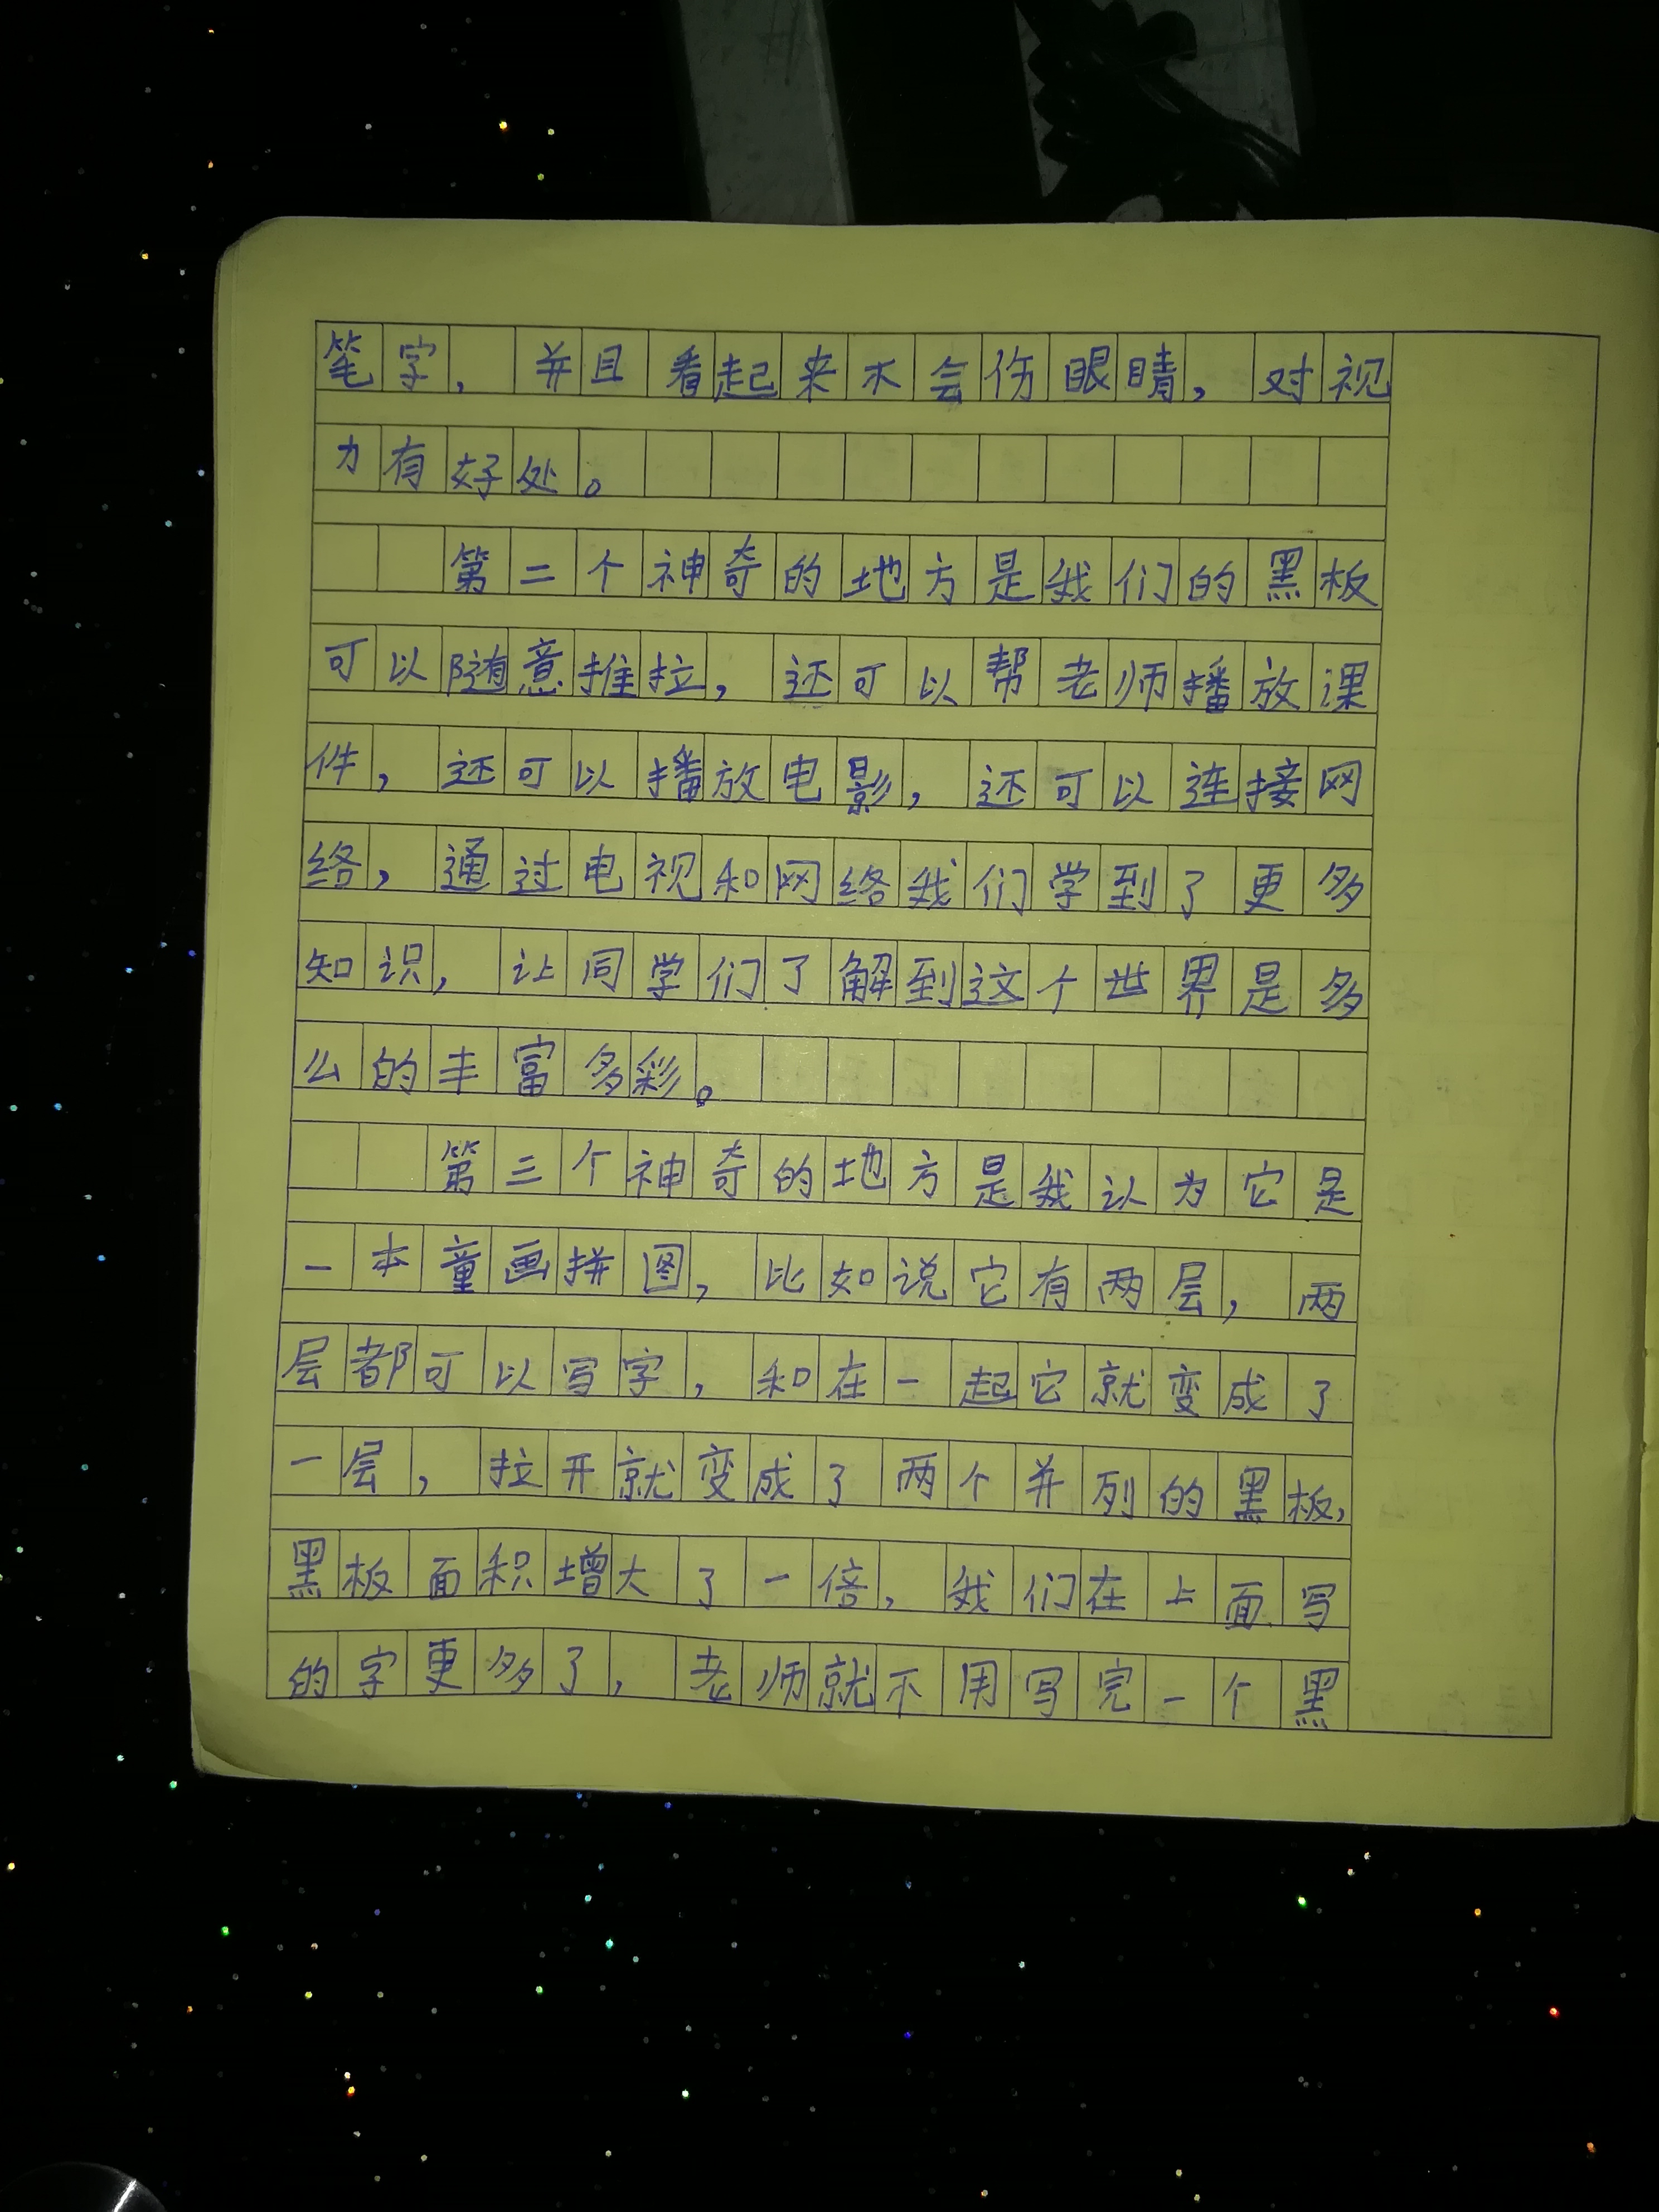 笔字，并且看起来不会伤眼睛，对视
力有好处。
第二个神奇的地方是我们的黑板
可以随意推拉，还可以帮老师播放课
件，还可以播放电影，还可以连接网
络，通过电视和网络我们学到了更多
知识，让同学们了解到这个世界是多
么的丰富多彩。
第三个神奇的地方是我认为它是
一本童画拼图，比如说它有两层，两
层都可以写字，和在一起它就变成了
一层，拉开就变成了两个并列的黑板，
黑板面积增大了一倍，我们在上面写
的字更多了，老师就不用写完一个黑